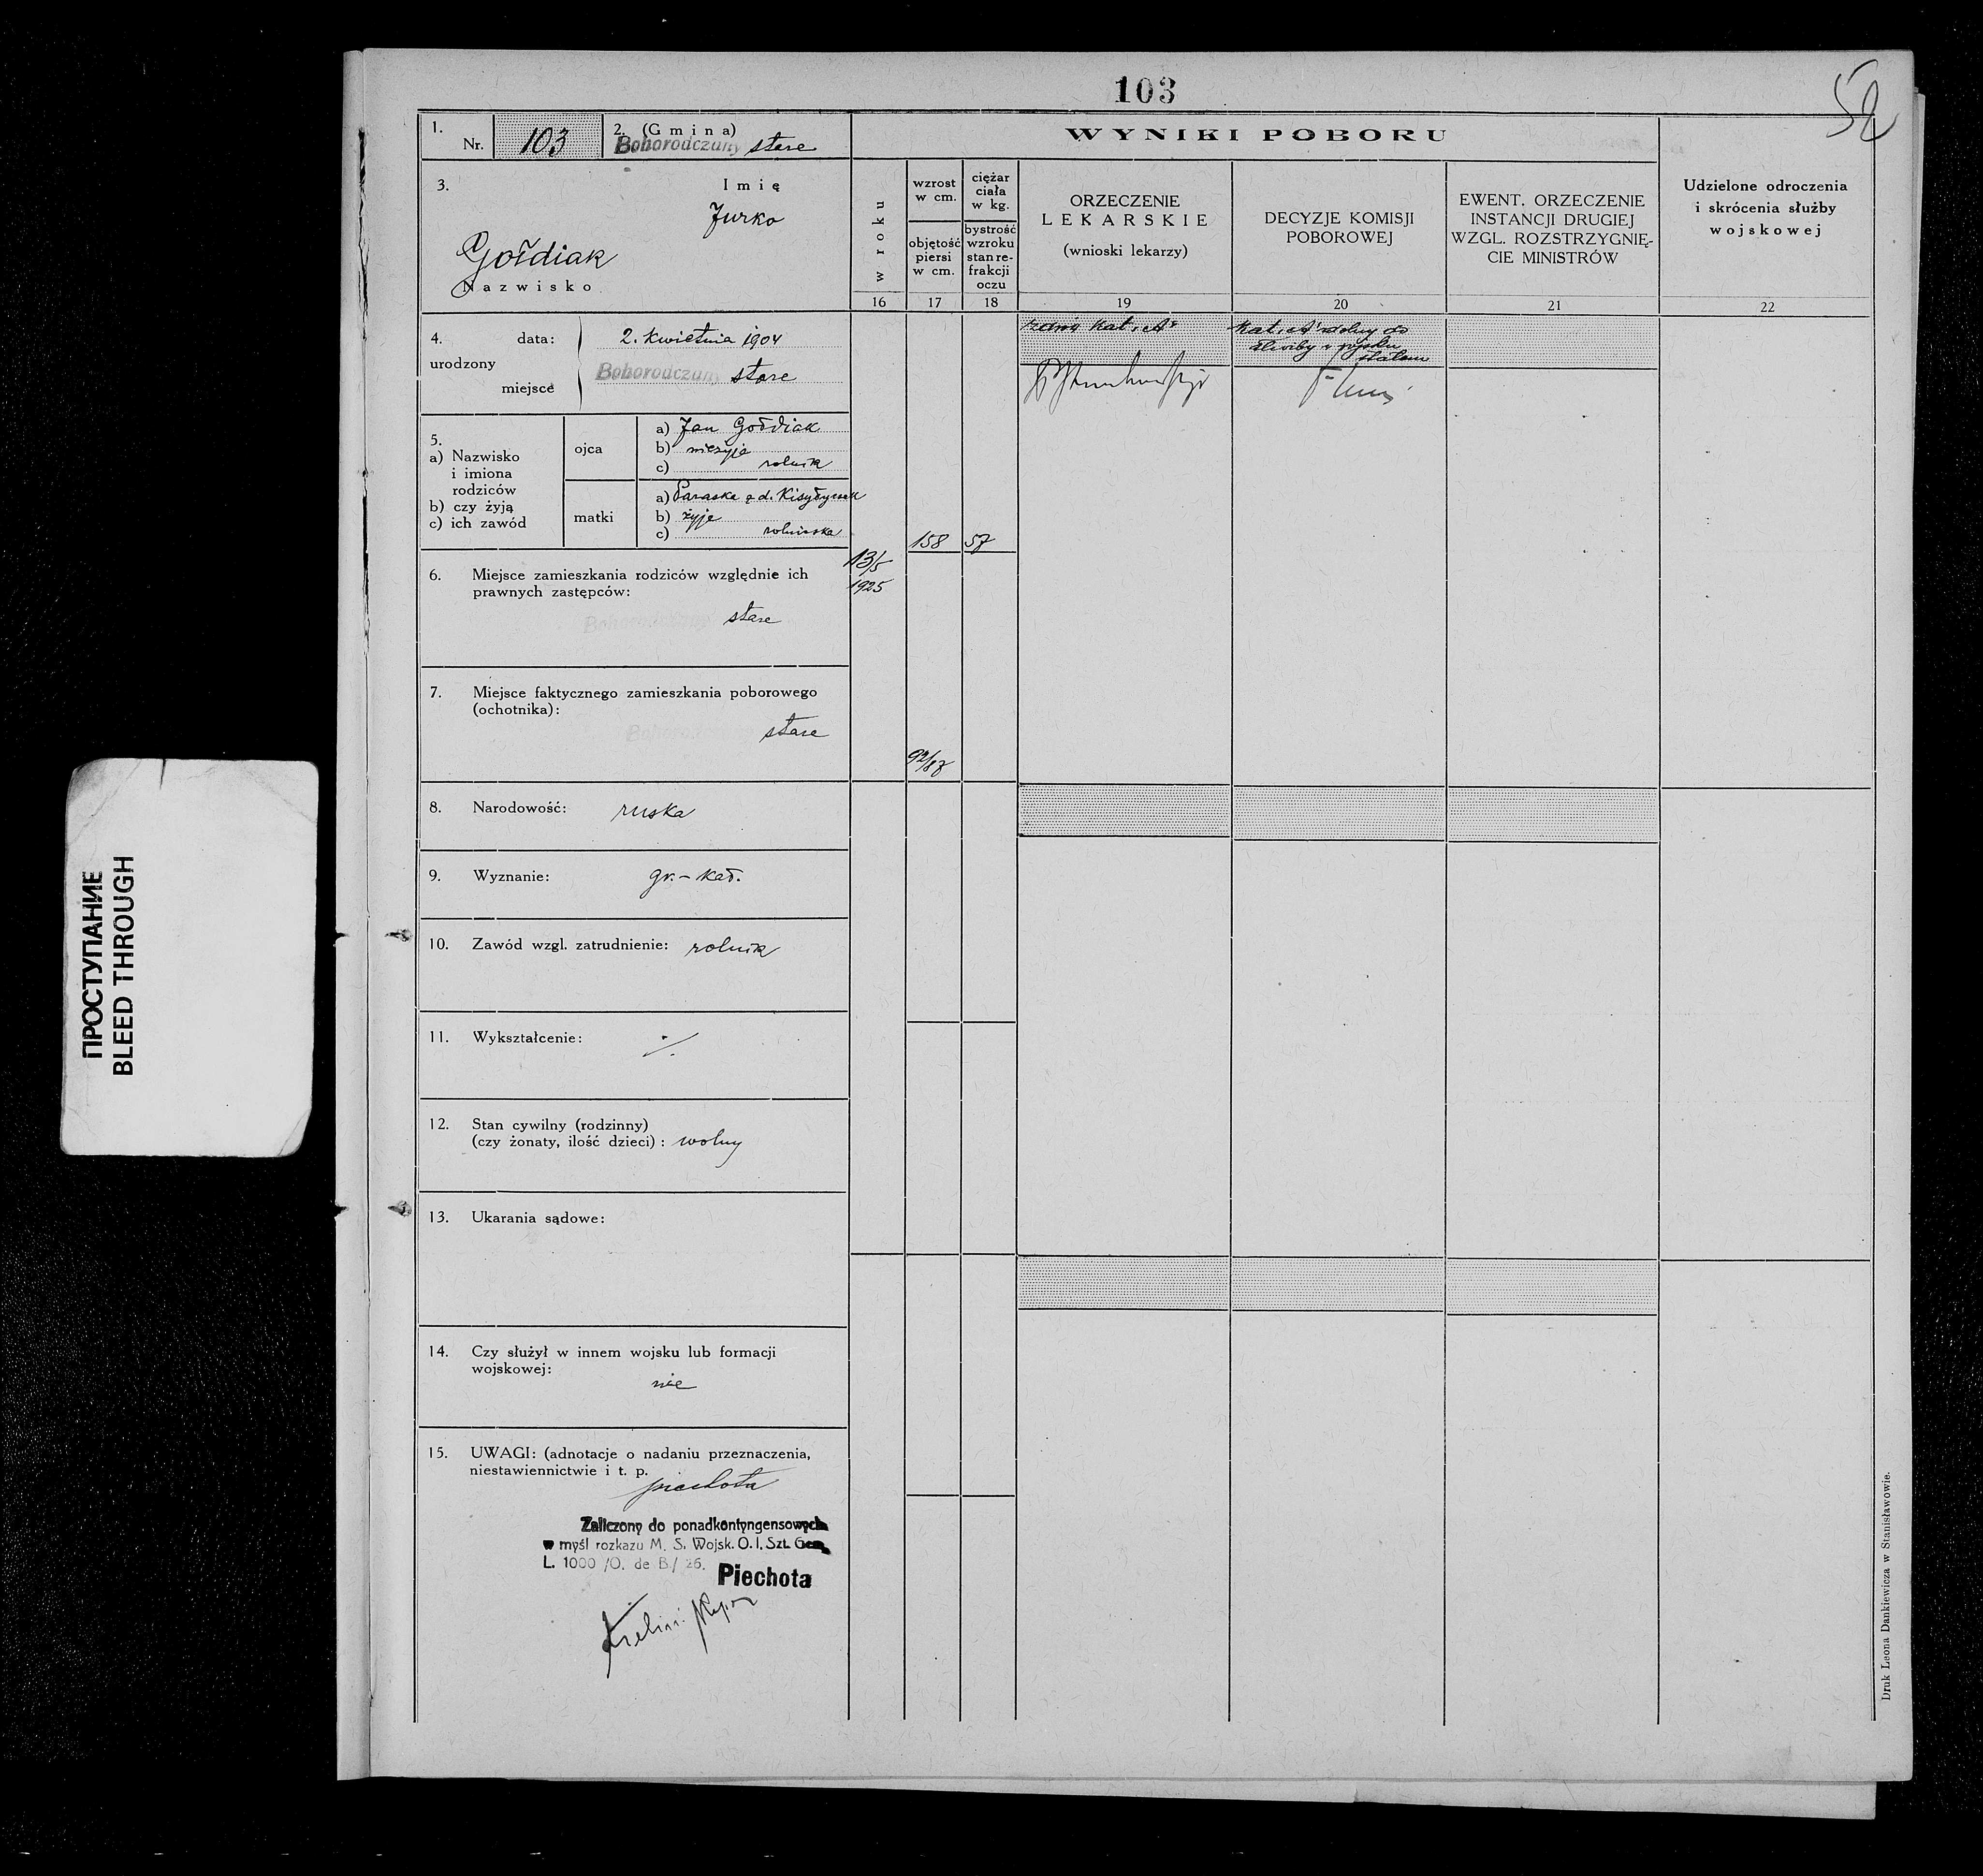 103
52
1.
Nr. 103
2. (Gmina)
Bohorodczany stare
WYNIKI POBORU
3.
Imię
Jurko
Gołdiak
Nazwisko
w roku
wzrost
w cm.
objętość
piersi
w cm.
ciężar
ciała
w kg.
bystrość
wzroku
stan re-
frakcji
oczu
ORZECZENIE
LEKARSKIE
(wnioski lekarzy)
DECYZJE KOMISJI
POBOROWEJ
EWENT. ORZECZENIE
INSTANCJI DRUGIEJ
WZGL. ROZSTRZYGNIĘ-
CIE MINISTRÓW
Udzielone odroczenia
i skrócenia służby
wojskowej
16 17 18 19 20 21 22
4. data: 2. kwietnia 1904
urodzony
miejsce Bohorodczany stare
kat. „A"
kat. „A" zdolny do
służby w wojsku
stałem
5.
a) Nazwisko
i imiona
rodziców
b) czy żyją
c) ich zawód
ojca
a) Jan Gołdiak
b) nieżyje
c) rolnik
matki
a) Paraska
b) żyje
c) rolniczka
158 57
13/5
1925
6. Miejsce zamieszkania rodziców względnie ich
prawnych zastępców:
Bohorodczany stare
7. Miejsce faktycznego zamieszkania poborowego
(ochotnika):
stare
92/87
8. Narodowość: ruska
9. Wyznanie: gr.-kat.
10. Zawód wzgl. zatrudnienie: rolnik
11. Wykształcenie: ·/.
12. Stan cywilny (rodzinny)
(czy żonaty, ilość dzieci) : wolny
13. Ukarania sądowe:
14. Czy służył w innem wojsku lub formacji
wojskowej:
nie
15. UWAGI: (adnotacje o nadaniu przeznaczenia,
niestawiennictwie i t. p.
piechota
Zaliczony do ponadkontyngensowych
w myśl rozkazu M. S. Wojsk. O. I. Szt. Gen.
L. 1000 /O. de B./ 26.
Piechota
Druk Leona Dankiewicza w Stanisławowie.
ПРОСТУПАНИЕ
BLEED THROUGH